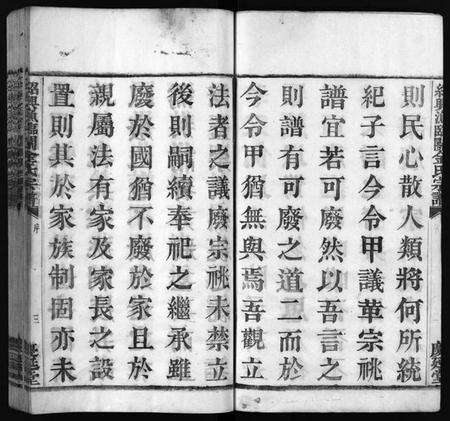 則民心散人類將何所統
紀子言今令甲議革宗祧
譜宜若可廢然以吾言之
則譜有可廢之道二而於
今令甲猶無與焉吾觀立
法者之議廢宗祧未禁立
後則嗣續奉祀之繼承雖
廢於國猶不廢於家且於
親屬法有家及家長之設
置則其於家族制固亦未
序
三